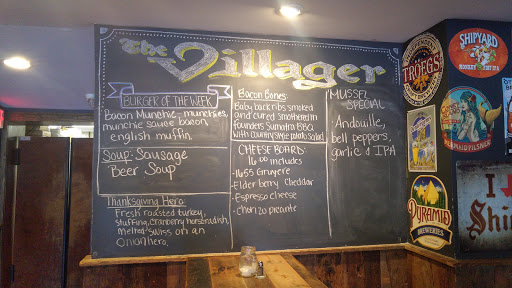 The Villager
BURGER OF THE WEEK
Bacon Munchie, munchies,
munchie sauce bacon,
english muffin.
Soup: Sausage
Beer Soup
Thanksgiving Hero:
Fresh roasted turkey,
stuffing, cranberry horseradish,
melted swiss on an
Onion hero.
Bacon Bones:
Baby back ribs smoked
and cured smothered in
founders Sumatra BBQ
with country style potato salad
CHEESE BOARD:
16.00 includes
-1655 Gruyere
-Elderberry Cheddar
-Espresso cheese
-Chorizo picante
MUSSEL
SPECIAL
Andouille,
bell peppers,
garlic & IPA
TRÖEGS
SHIPYARD
MONKEY FIST IPA
MERMAID PILSNER
PYRAMID
BREWERIES
I
Shi